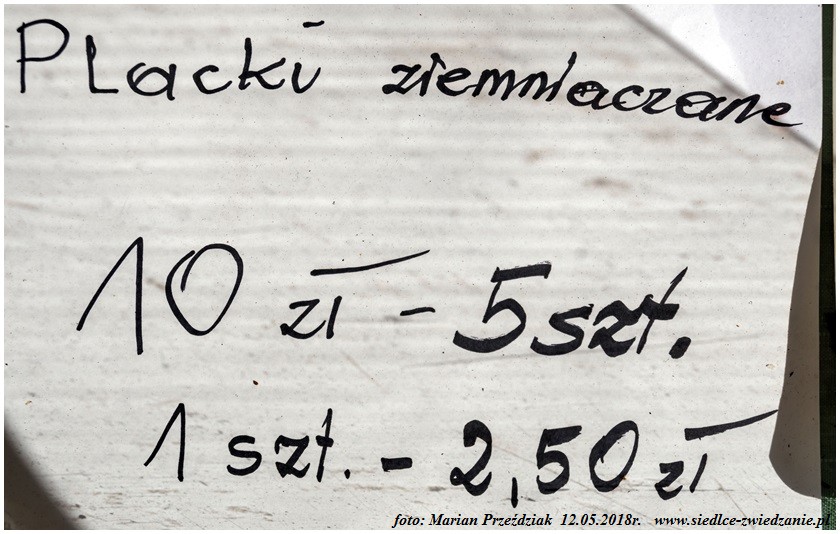 Placki ziemniaczane
10 zł - 5 szt.
1 szt. - 2,50 zł
foto: Marian Przeździak 12.05.2018r. www.siedlce-zwiedzanie.pl